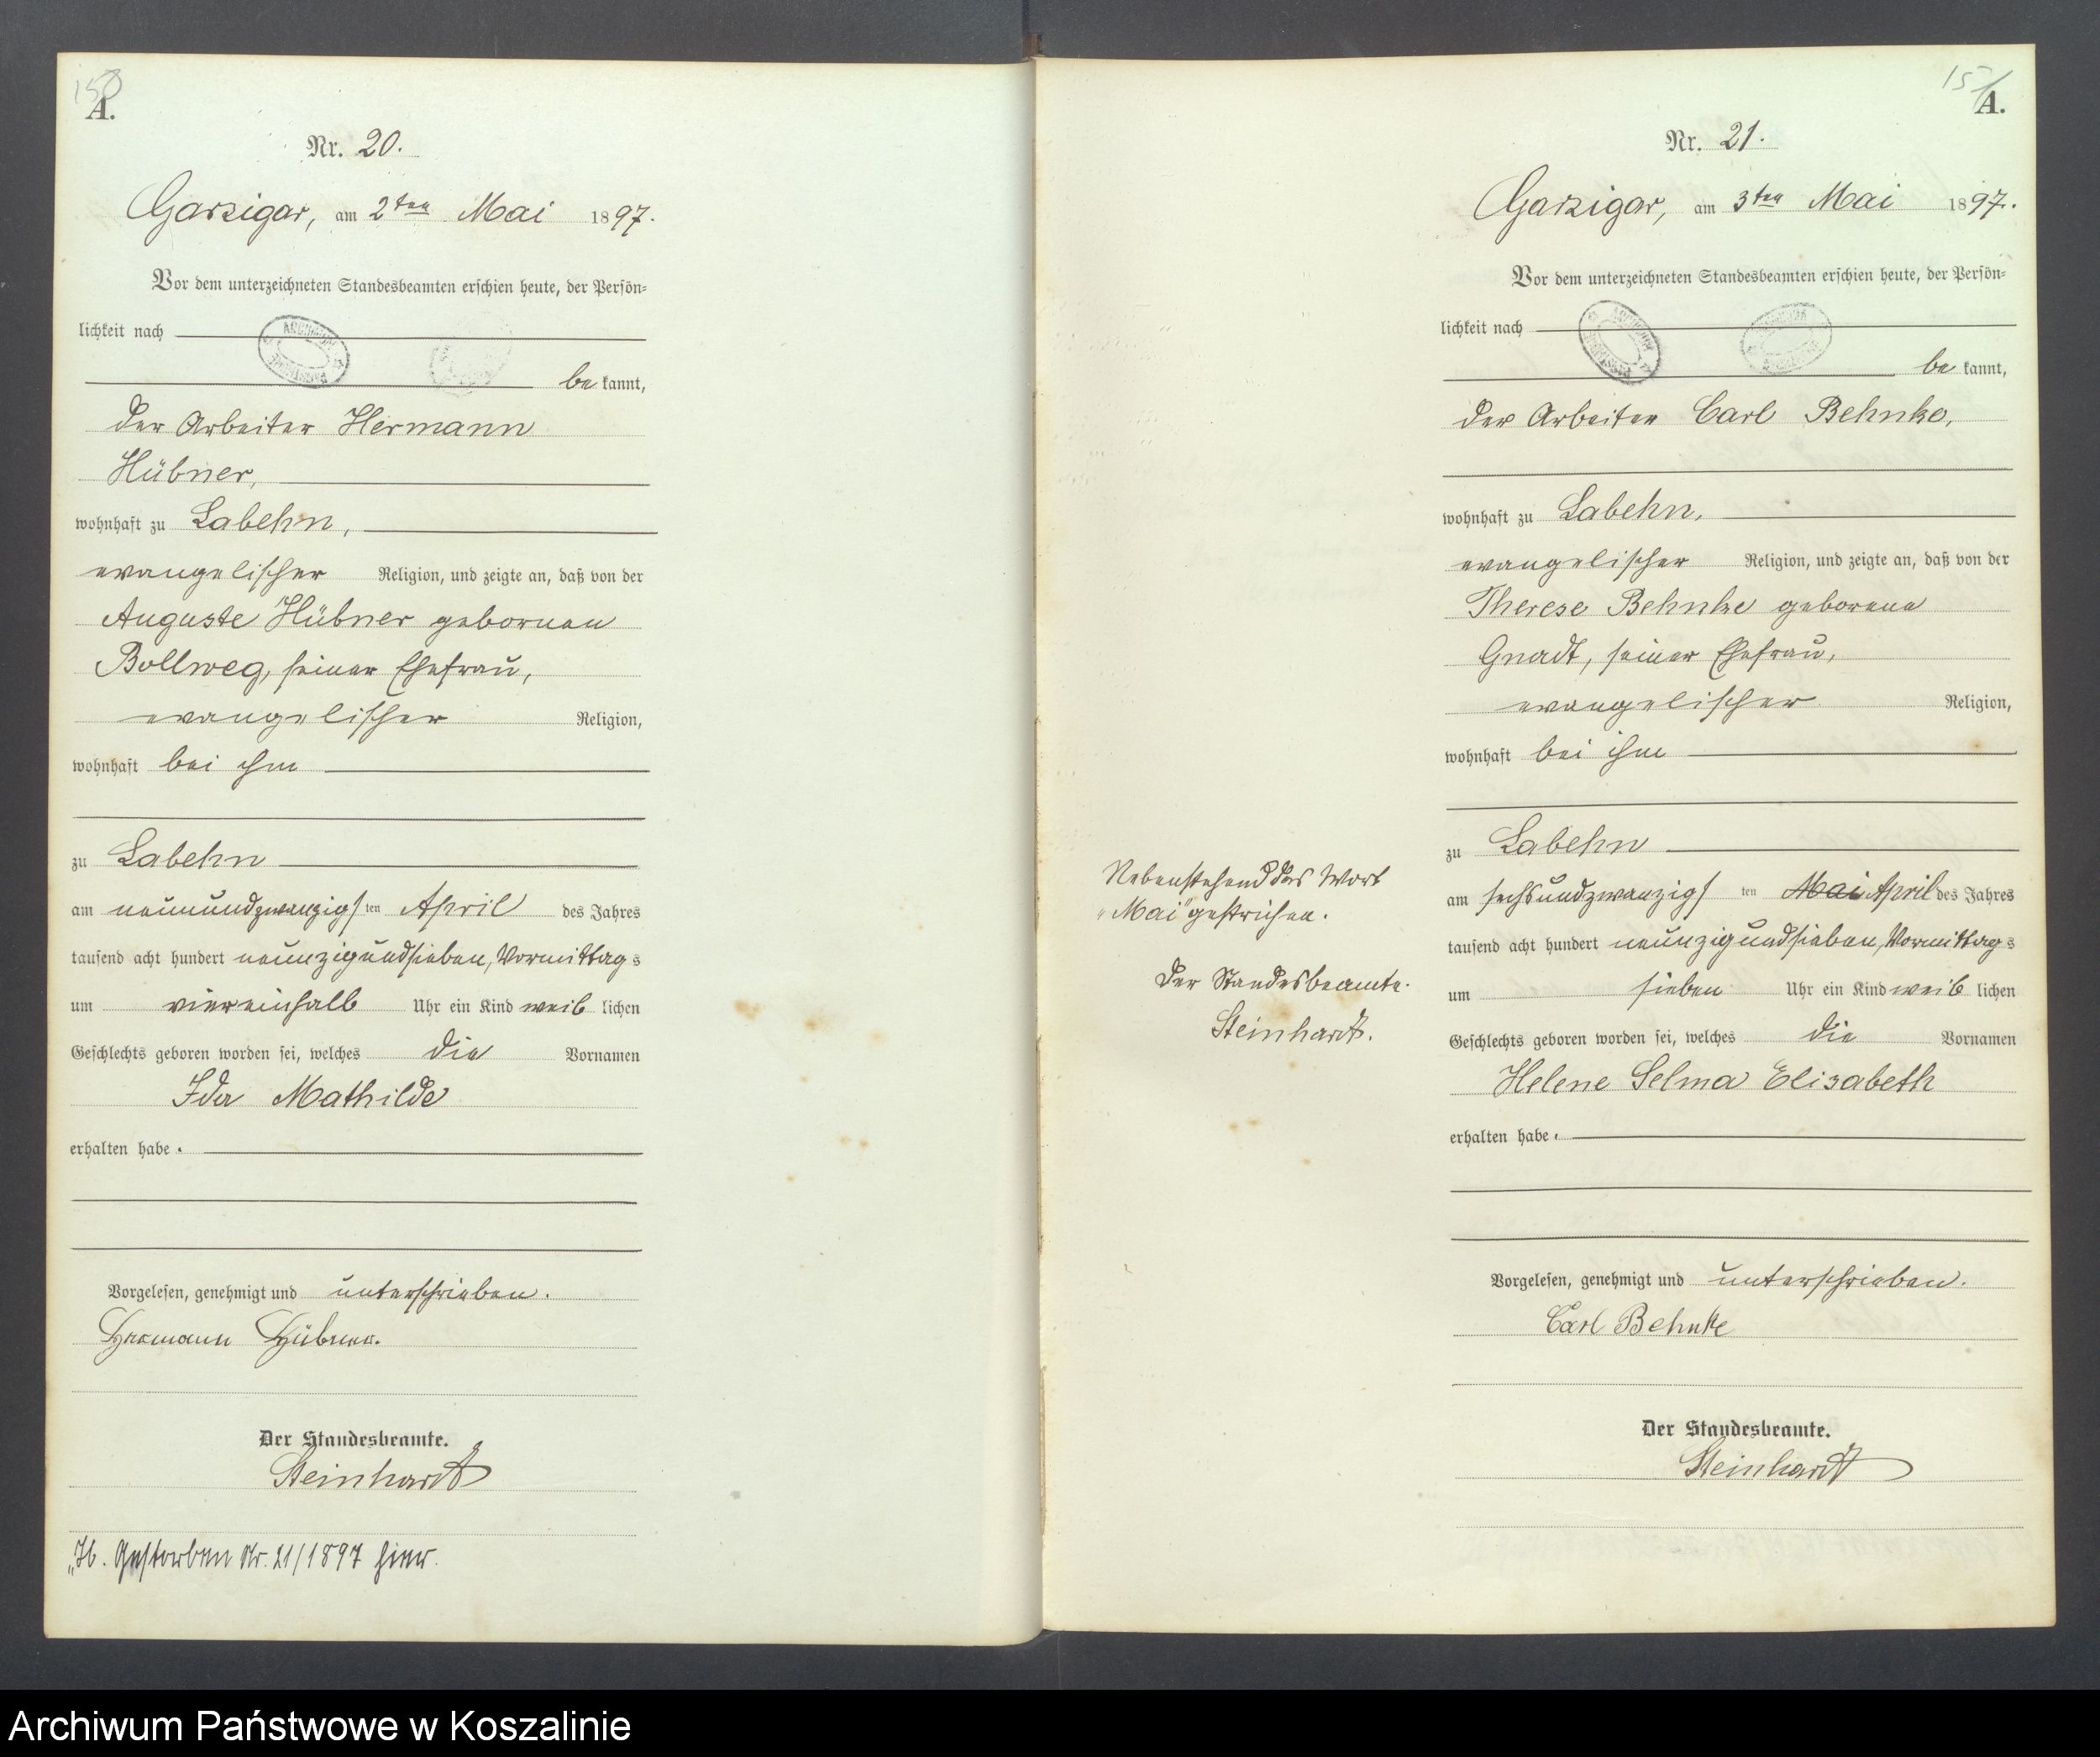 150
A.
Nr. 20.
Garzigar, am 2ten Mai 1897.
Vor dem unterzeichneten Standesbeamten erschien heute, der Persön-
lichkeit nach
be kannt,
der Arbeiter Hermann
Hübner,
wohnhaft zu Labehn,
evangelischer Religion, und zeigte an, daß von der
Auguste Hübner gebornen
Bollweg, seiner Ehefrau,
evangelischer Religion,
wohnhaft bei ihm
zu Labehn
am neunundzwanzigsten April des Jahres
tausend acht hundert neunzigundsieben, Vormittags
um viereinhalb Uhr ein Kind weiblichen
Geschlechts geboren worden sei, welches die Vornamen
Ida Mathilde
erhalten habe.
Vorgelesen, genehmigt und unterschrieben.
Hermann Hübner.
Der Standesbeamte.
Steinhardt
Gestorben Nr. 21/1897 hier.
151
A.
Nr. 21.
Garzigar, am 3ten Mai 1897.
Vor dem unterzeichneten Standesbeamten erschien heute, der Persön-
lichkeit nach
be kannt,
der Arbeiter Carl Behnke,
wohnhaft zu Labehn,
evangelischer Religion, und zeigte an, daß von der
Therese Behnke geborene
Gnadt, seiner Ehefrau,
evangelischer Religion,
wohnhaft bei ihm
zu Labehn
am sechsundzwanzigsten Mai April des Jahres
tausend acht hundert neunzigundsieben, Vormittags
um sieben Uhr ein Kind weiblichen
Geschlechts geboren worden sei, welches die Vornamen
Helene Selma Elisabeth
erhalten habe.
Vorgelesen, genehmigt und unterschrieben.
Carl Behnke
Der Standesbeamte.
Steinhardt
Nebenstehend das Wort
"Mai" gestrichen.
Der Standesbeamte.
Steinhardt.
Archiwum Państwowe w Koszalinie